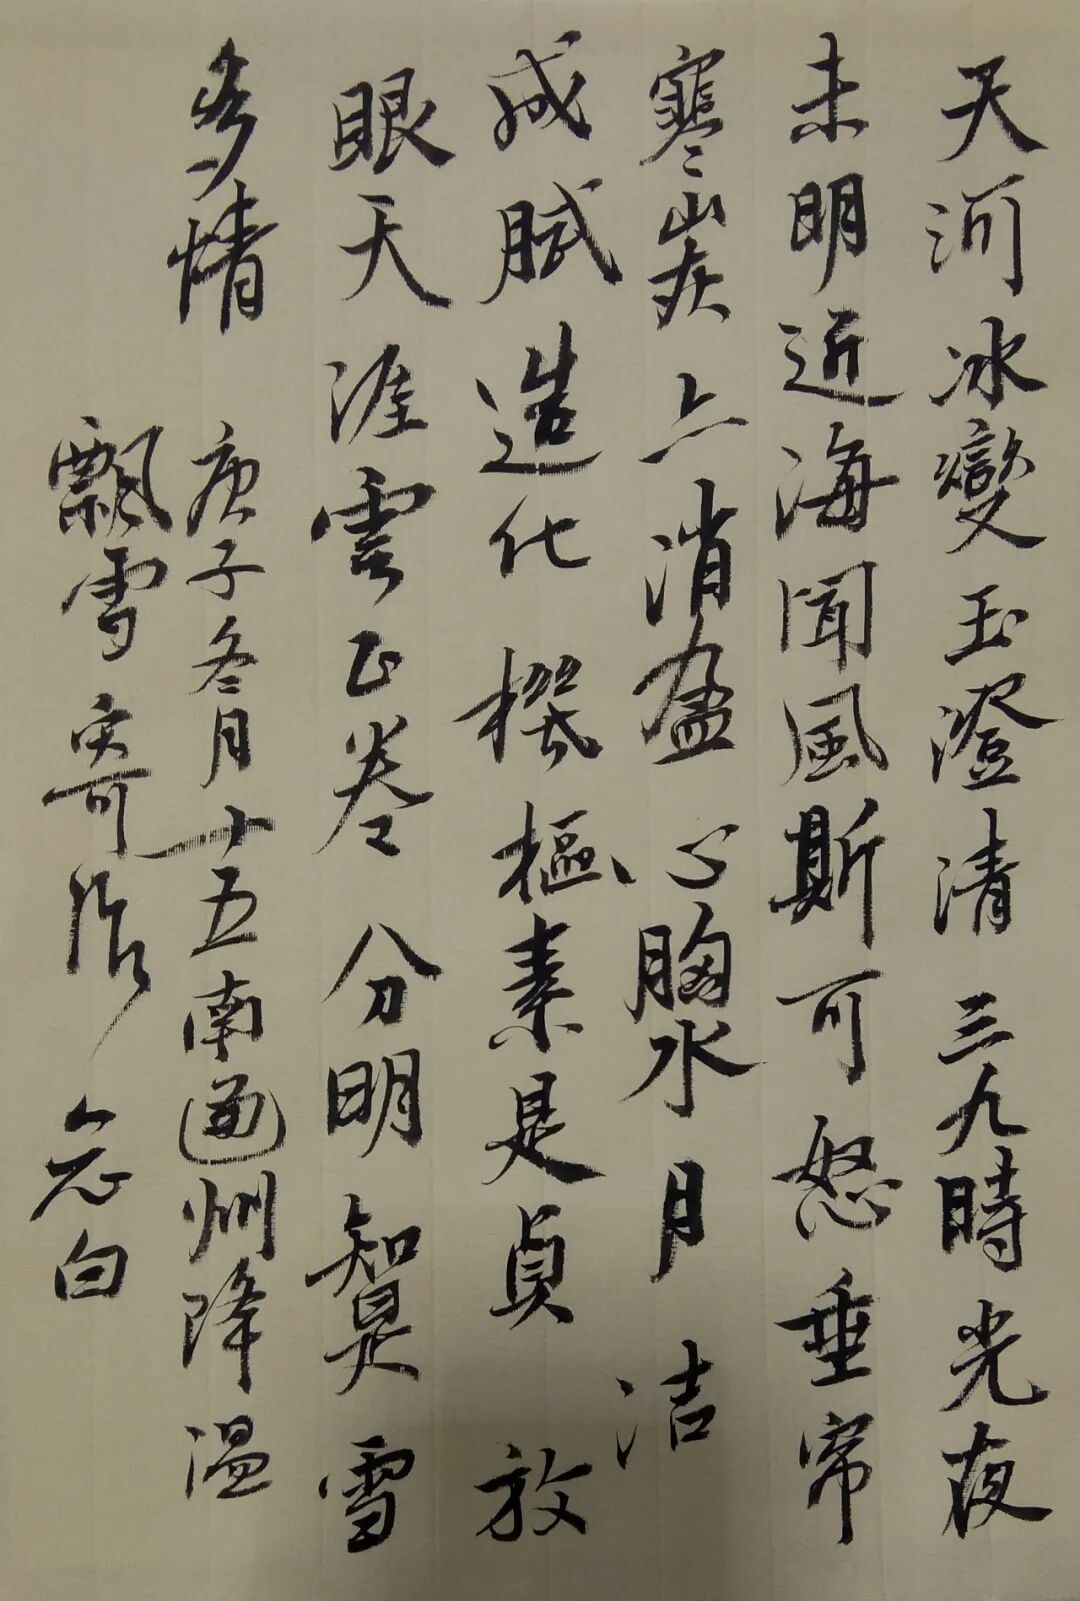 天河冰變玉澄清三九時光夜
未明近海聞風斯可怒垂帘
寒炭亦消盈心胸水月洁
成賦造化機樞素是貞放
眼天涯雲正卷分明智是雪
多情
庚子冬月十五南通州降温
飄雪寄作 念白